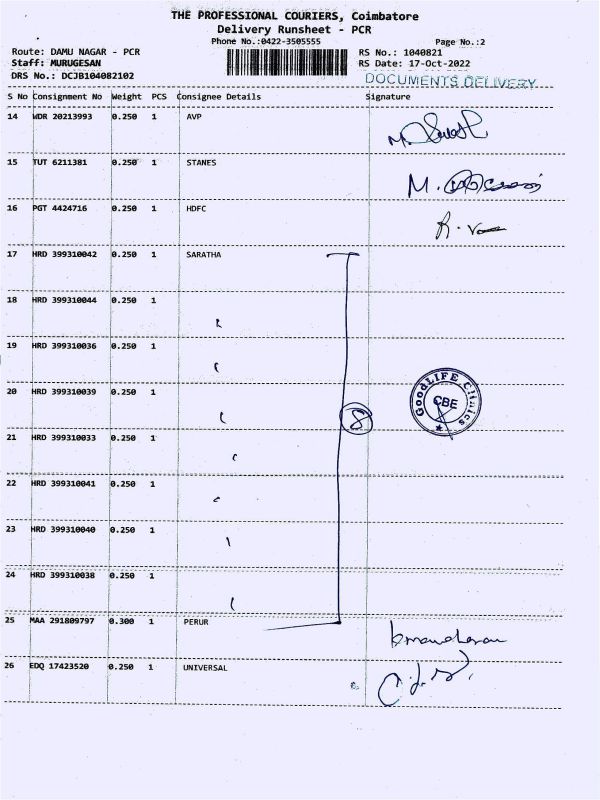 THE PROFESSIONAL COURIERS, Coimbatore
Delivery Runsheet - PCR
Phone No.:0422-3505555 Page No.:2
Route: DAMU NAGAR - PCR RS No.: 1040821
Staff: MURUGESAN RS Date: 17-Oct-2022
DRS No.: DCJB104082102 DOCUMENTS DELIVERY
S No Consignment No Weight PCS Consignee Details Signature
14 WDR 20213993 0.250 1 AVP
15 TUT 6211381 0.250 1 STANES
16 PGT 4424716 0.250 1 HDFC
17 HRD 399310042 0.250 1 SARATHA
18 HRD 399310044 0.250 1
19 HRD 399310036 0.250 1
20 HRD 399310039 0.250 1
GoodLIFE Clinics
CBE
8
21 HRD 399310033 0.250 1
22 HRD 399310041 0.250 1
23 HRD 399310040 0.250 1
24 HRD 399310038 0.250 1
25 MAA 291809797 0.300 1 PERUR
26 EDQ 17423520 0.250 1 UNIVERSAL